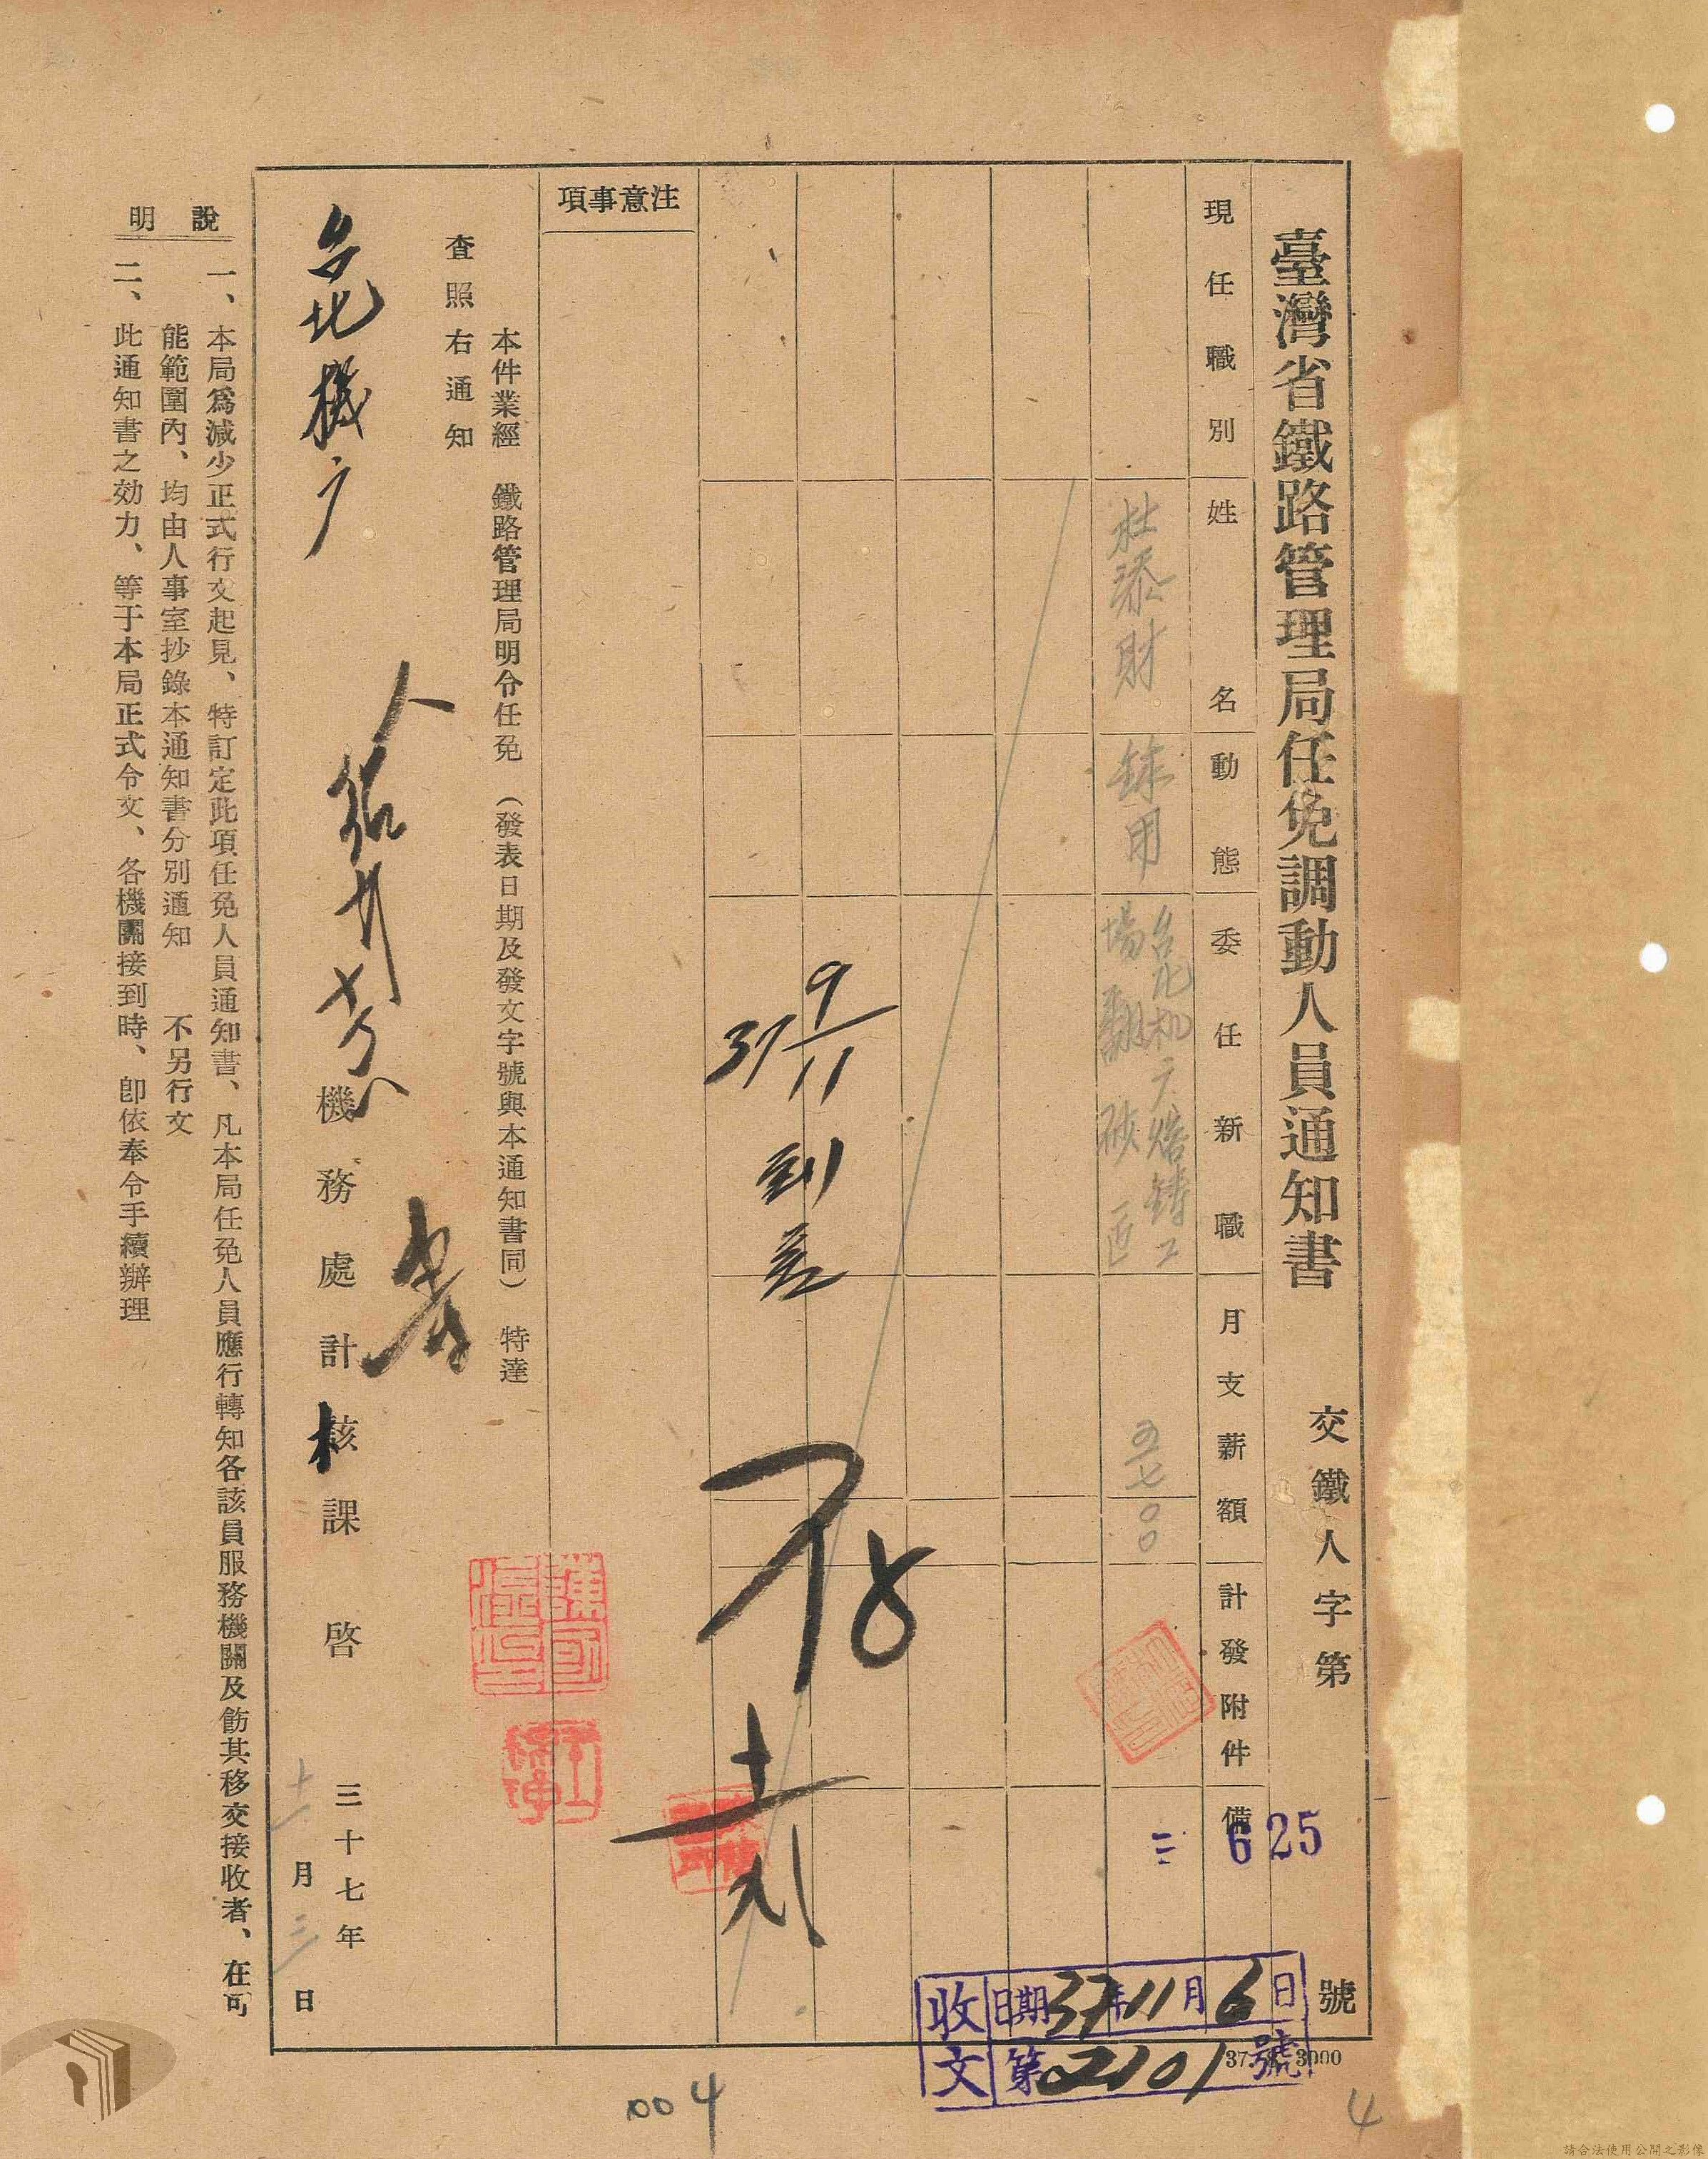 臺灣省鐵路管理局任免調動人員通知書
交鐵人字第625號
現任職別
姓名
動態
委任新職
月支薪額
計發附件
備
杜添財
錄用
台北机厂熔鑄工
場翻砂匠
7/11
37
到差
注意事項
本件業經 鐵路管理局明令任免（發表日期及發文字號與本通知書同）特達
查照右通知
台北機厂
機務處計核課 啓
三十七年
十一月三日
說明
一、本局爲減少正式行文起見、特訂定此項任免人員通知書、凡本局任免人員應行轉知各該員服務機關及飭其移交接收者、在可
能範圍內、均由人事室抄錄本通知書分別通知 不另行文
二、此通知書之効力、等于本局正式令文、各機關接到時、卽依奉令手續辦理
收文
日期37年11月6日
第2101號
3000
004
4
請合法使用公開之影像